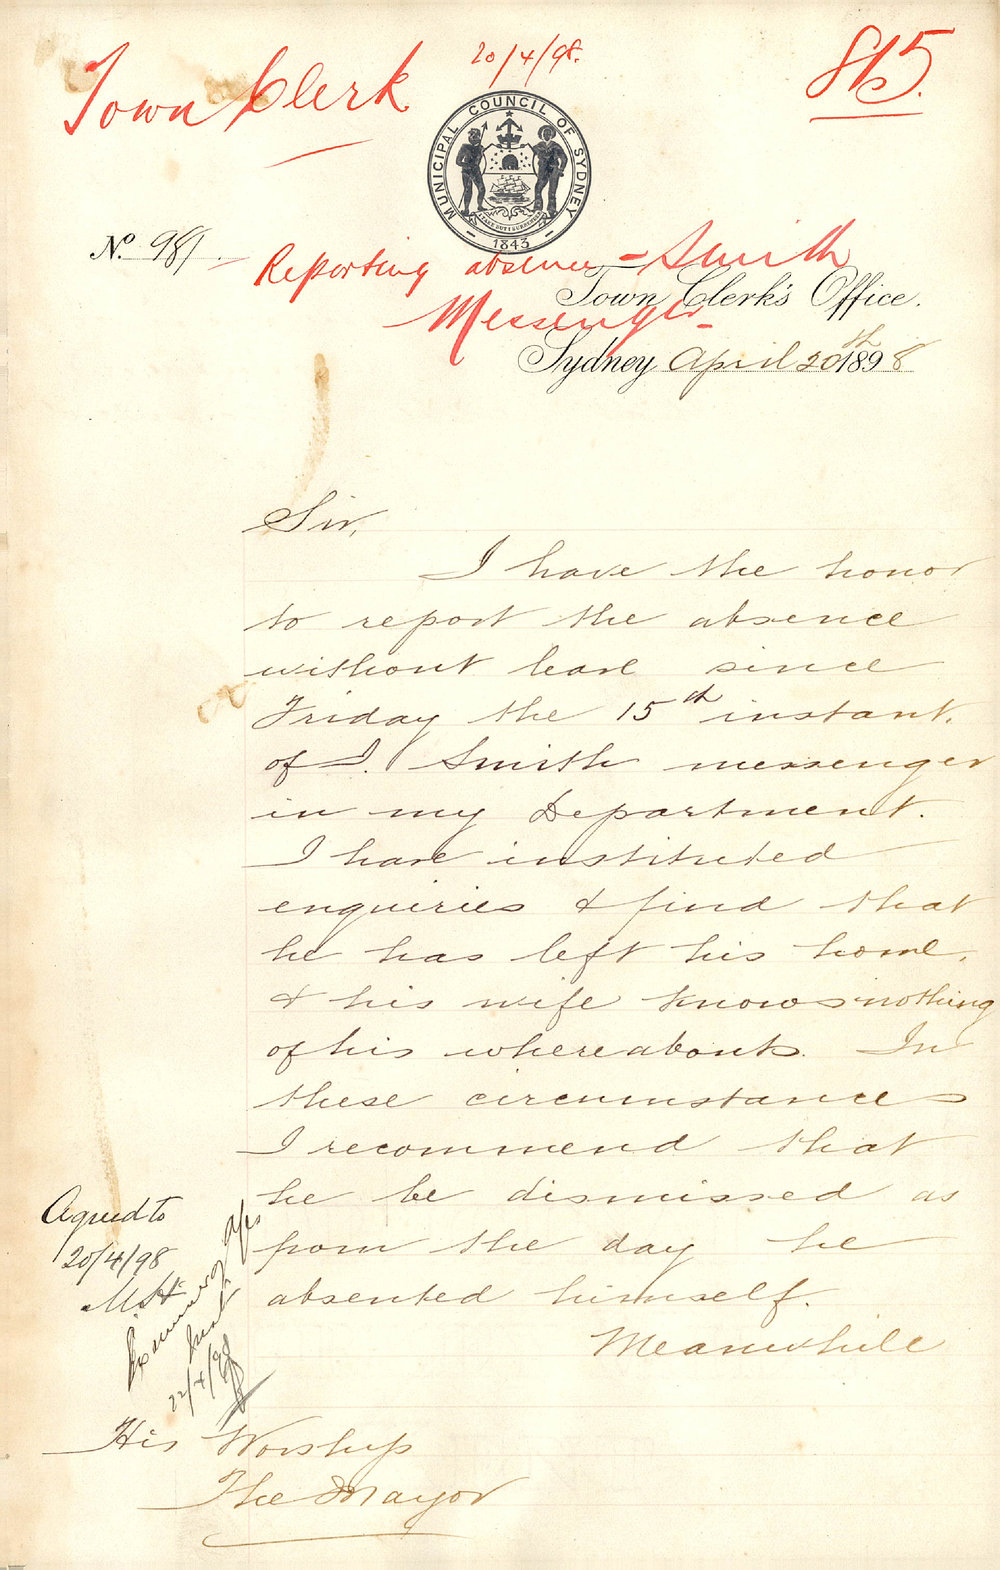 Town Clerk
20/4/98.
815.
MUNICIPAL COUNCIL OF SYDNEY
1843
No. 981
Reporting absence - Smith
Messenger
Town Clerk's Office.
Sydney April 20th 1898
Sir,
I have the honor
to report the absence
without leave since
Friday the 15th instant.
of J. Smith messenger
in my Department.
I have instituted
enquiries & find that
he has left his home,
& his wife knows nothing
of his whereabouts. In
these circumstances
I recommend that
he be dismissed as
from the day he
absented himself.
Meanwhile
Agreed to
20/4/98
M.H.
22/4/98
His Worship
The Mayor